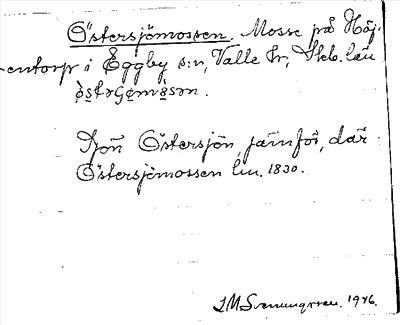 Östersjömossen. Mosse på Höj-
entorp i Eggby s:n, Valle hr, Skb. län
Sjön Östersjön, jämför, där
Östersjömossen lm. 1830.
I M Svenungsson. 1946.